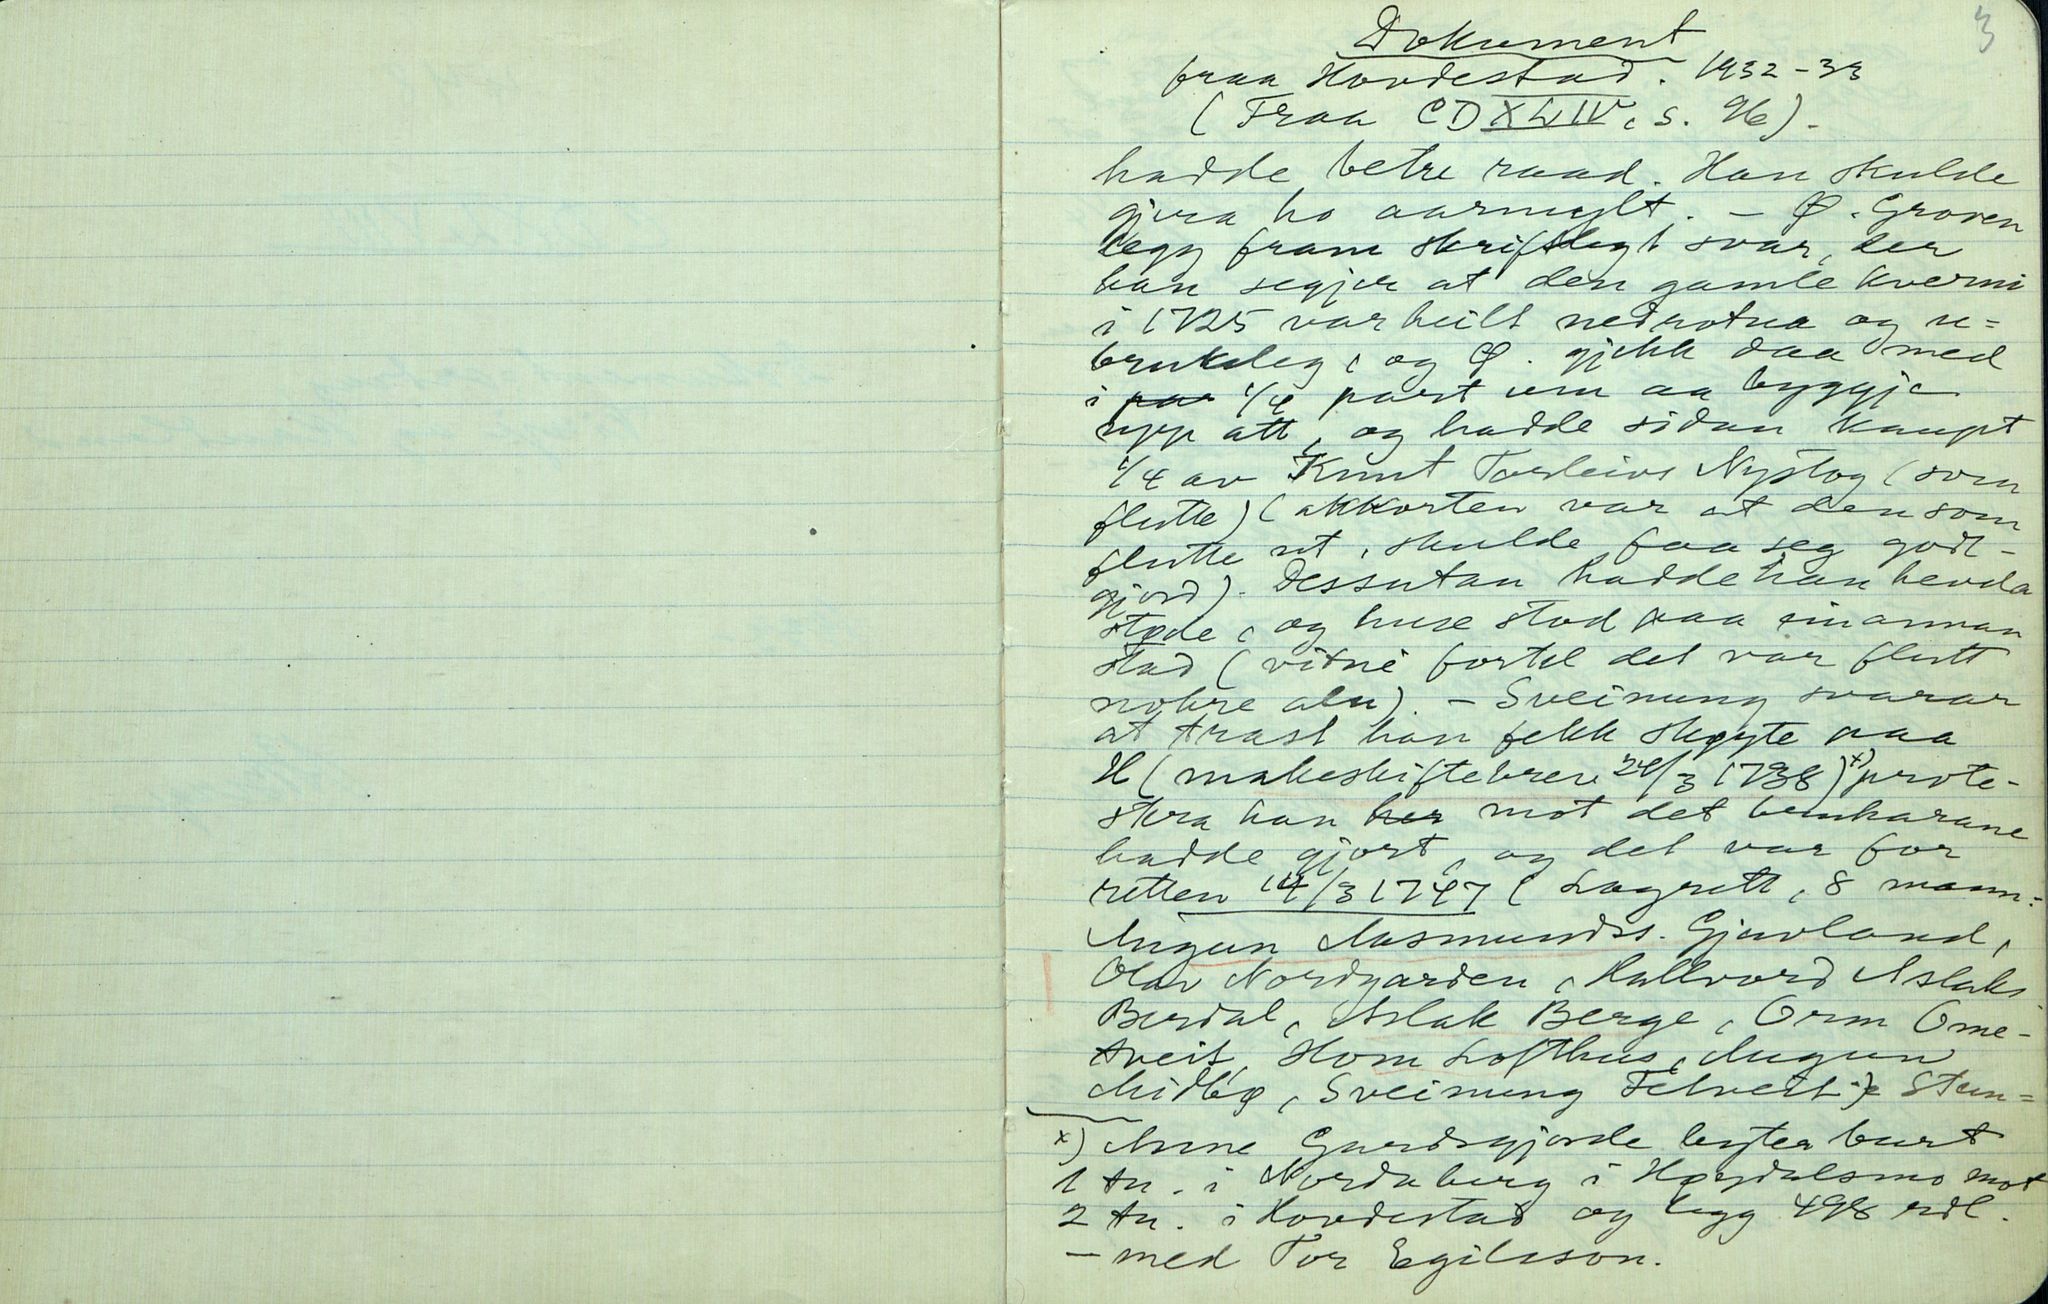 3
Dokument
fraa Hovdestad. 1932-33
(Fraa CDXLIV, s. 96).
hadde betre raad. Han skulde
gjera ho aarmylt. - Ø. Groven
legg fram skriftlegt svar, der
han segjer at den gamle kverni
i 1725 var heilt nedrotna og u=
brukeleg, og Ø. gjekk daa med
i 1/4 part um aa byggje
upp att, og hadde sidan kaupt
1/4 av Knut Torleivs Nystog (som
flutte) (akkorten var at den som
flutte ut, skulde faa seg godt-
gjord). Dessutan hadde han hevda
støde, og huse stod paa ein annan
stad (vitni fortel det var flutt
nokre aln). - Sveinung svarar
at trast han fekk skøyte paa
H (makeskiftebrev 24/3 1738)x) prote-
stera han mot det brukarane
hadde gjort, og det var for
retten 14/3 1747 (Lagrett, 8 mann:
Aasmundss. Gjuvland,
Olav Nordgarden, Hallvord Aslaks.
Berdal, Aslak Berge, Orm Ome-
tveit, Lofthus, Augun
Midbø, Sveinung Felveit) Stem=
x) Anne Gardsgjorde byter burt
1 tn. i Nordaberg i Høydalsmo mot
2 tn. i Hovdestad og legg 498 rdl.
- med Tor Egilsson.